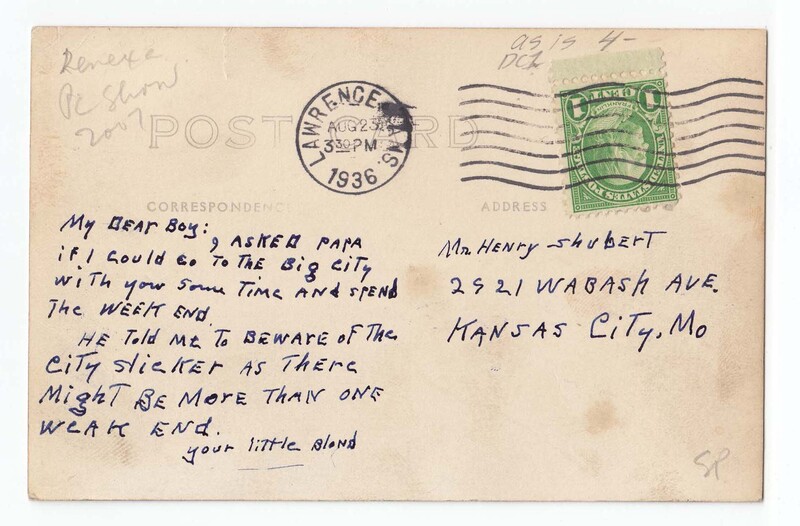 Lenexa
PC Show
2007
as is 4-
DC1
POST CARD
LAWRENCE, KANS.
AUG 23
3 30 PM
1936
1 CENT 1
FRANKLIN
UNITED STATES POSTAGE
CORRESPONDENCE
ADDRESS
My DEAR Boy:
I ASKED PAPA
if I Could Go To THE Big City
with you Some Time AND SPEND
The WEEK END.
HE Told ME To BEWARE OF The
City slicKER AS THERE
Might BE MORE THAN ONE
WEAK END.
your little Blond
Mr. Henry Shubert
2921 WABASH AVE.
KANSAS City, Mo
SP